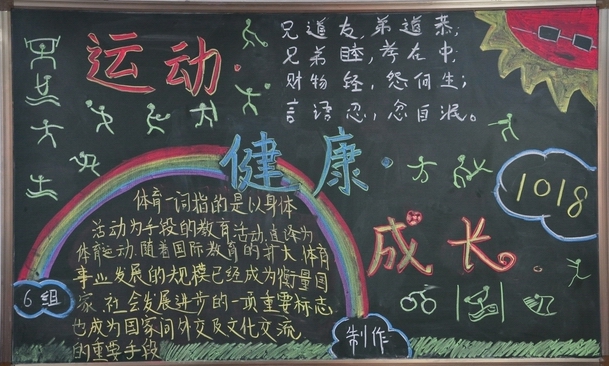 运动·
兄道友,弟道恭;
兄弟睦,孝在中;
财物轻,怨何生;
言语忍,忿自泯。
健康·
1018
成长
体育一词指的是以身体
活动为手段的教育活动,直译为
体育运动.随着国际教育的扩大,体育
事业发展的规模已经成为衡量国
家、社会发展进步的一项重要标志
也成为国家间外交及文化交流
的重要手段
6组
制作